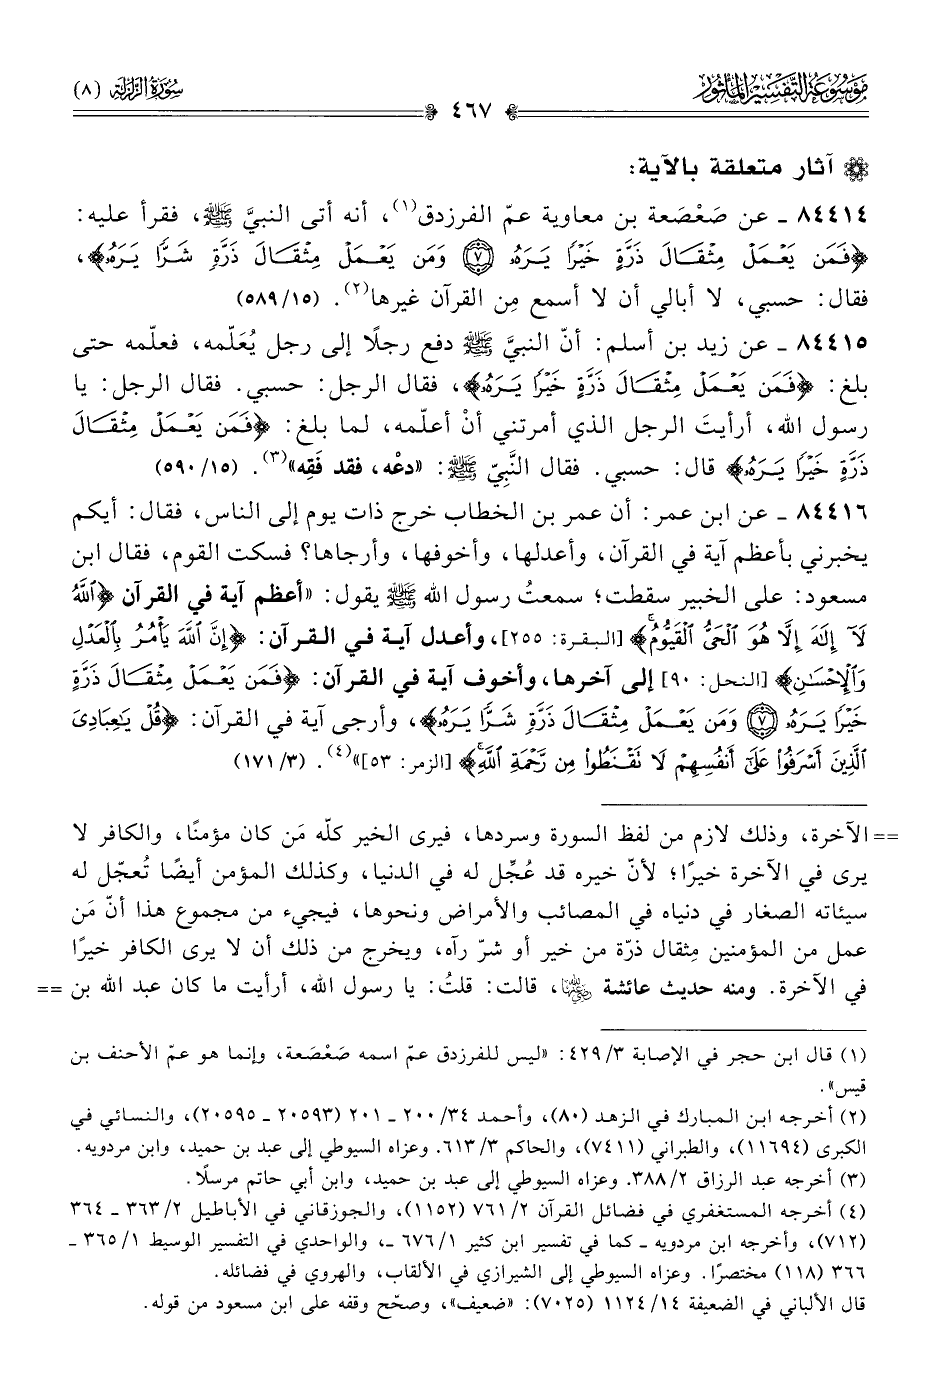 مَوْسُوعَة التَّفْسِير المَأْثُور
سُورَةُ الزَّلْزَلَة (٨)
٤٦٧
آثار متعلقة بالآية:
٨٤٤١٤ ـ عن صَعْصَعة بن معاوية عمّ الفرزدق(١)، أنه أتى النبيَّ ﷺ، فقرأ عليه:
﴿فَمَن يَعْمَلْ مِثْقَالَ ذَرَّةٍ خَيْرًا يَرَهُۥ ۝٧ وَمَن يَعْمَلْ مِثْقَالَ ذَرَّةٍ شَرًّا يَرَهُۥ﴾،
فقال: حسبي، لا أبالي أن لا أسمع مِن القرآن غيرها(٢). (١٥/٥٨٩)
٨٤٤١٥ ـ عن زيد بن أسلم: أنّ النبيَّ ﷺ دفع رجلًا إلى رجل يُعَلّمه، فعلّمه حتى
بلغ: ﴿فَمَن يَعْمَلْ مِثْقَالَ ذَرَّةٍ خَيْرًا يَرَهُۥ﴾، فقال الرجل: حسبي. فقال الرجل: يا
رسول الله، أرأيتَ الرجل الذي أمرتني أنْ أعلّمه، لما بلغ: ﴿فَمَن يَعْمَلْ مِثْقَالَ
ذَرَّةٍ خَيْرًا يَرَهُۥ﴾ قال: حسبي. فقال النَّبيّ ﷺ: «دعْه، فقد فَقِه»(٣). (١٥/٥٩٠)
٨٤٤١٦ ـ عن ابن عمر: أن عمر بن الخطاب خرج ذات يوم إلى الناس، فقال: أيكم
يخبرني بأعظم آية في القرآن، وأعدلها، وأخوفها، وأرجاها؟ فسكت القوم، فقال ابن
مسعود: على الخبير سقطت؛ سمعتُ رسول الله ﷺ يقول: «أعظم آية في القرآن ﴿ٱللَّهُ
لَآ إِلَٰهَ إِلَّا هُوَ ٱلْحَىُّ ٱلْقَيُّومُ﴾ [البقرة: ٢٥٥]، وأعدل آية في القرآن: ﴿إِنَّ ٱللَّهَ يَأْمُرُ بِٱلْعَدْلِ
وَٱلْإِحْسَٰنِ﴾ [النحل: ٩٠] إلى آخرها، وأخوف آية في القرآن: ﴿فَمَن يَعْمَلْ مِثْقَالَ ذَرَّةٍ
خَيْرًا يَرَهُۥ ۝٧ وَمَن يَعْمَلْ مِثْقَالَ ذَرَّةٍ شَرًّا يَرَهُۥ﴾، وأرجى آية في القرآن: ﴿قُلْ يَٰعِبَادِىَ
ٱلَّذِينَ أَسْرَفُوا۟ عَلَىٰٓ أَنفُسِهِمْ لَا تَقْنَطُوا۟ مِن رَّحْمَةِ ٱللَّهِ﴾ [الزمر: ٥٣]»(٤). (٣/١٧١)
== الآخرة، وذلك لازم من لفظ السورة وسردها، فيرى الخير كلّه مَن كان مؤمنًا، والكافر لا
يرى في الآخرة خيرًا؛ لأنّ خيره قد عُجِّل له في الدنيا، وكذلك المؤمن أيضًا تُعجّل له
سيئاته الصغار في دنياه في المصائب والأمراض ونحوها، فيجيء من مجموع هذا أنّ مَن
عمل من المؤمنين مِثقال ذرّة من خير أو شرّ رآه، ويخرج من ذلك أن لا يرى الكافر خيرًا
في الآخرة. ومنه حديث عائشة رضي الله عنها، قالت: قلتُ: يا رسول الله، أرأيت ما كان عبد الله بن ==
(١) قال ابن حجر في الإصابة ٣/٤٢٩: «ليس للفرزدق عمّ اسمه صَعْصَعة، وإنما هو عمّ الأحنف بن
قيس».
(٢) أخرجه ابن المبارك في الزهد (٨٠)، وأحمد ٣٤/٢٠٠ ـ ٢٠١ (٢٠٥٩٣ ـ ٢٠٥٩٥)، والنسائي في
الكبرى (١١٦٩٤)، والطبراني (٧٤١١)، والحاكم ٣/٦١٣. وعزاه السيوطي إلى عبد بن حميد، وابن مردويه.
(٣) أخرجه عبد الرزاق ٢/٣٨٨. وعزاه السيوطي إلى عبد بن حميد، وابن أبي حاتم مرسلًا.
(٤) أخرجه المستغفري في فضائل القرآن ٢/٧٦١ (١١٥٢)، والجوزقاني في الأباطيل ٢/٣٦٣ ـ ٣٦٤
(٧١٢)، وأخرجه ابن مردويه ـ كما في تفسير ابن كثير ١/٦٧٦ ـ، والواحدي في التفسير الوسيط ١/٣٦٥ ـ
٣٦٦ (١١٨) مختصرًا. وعزاه السيوطي إلى الشيرازي في الألقاب، والهروي في فضائله.
قال الألباني في الضعيفة ١٤/١١٢٤ (٧٠٢٥): «ضعيف»، وصحّح وقفه على ابن مسعود من قوله.